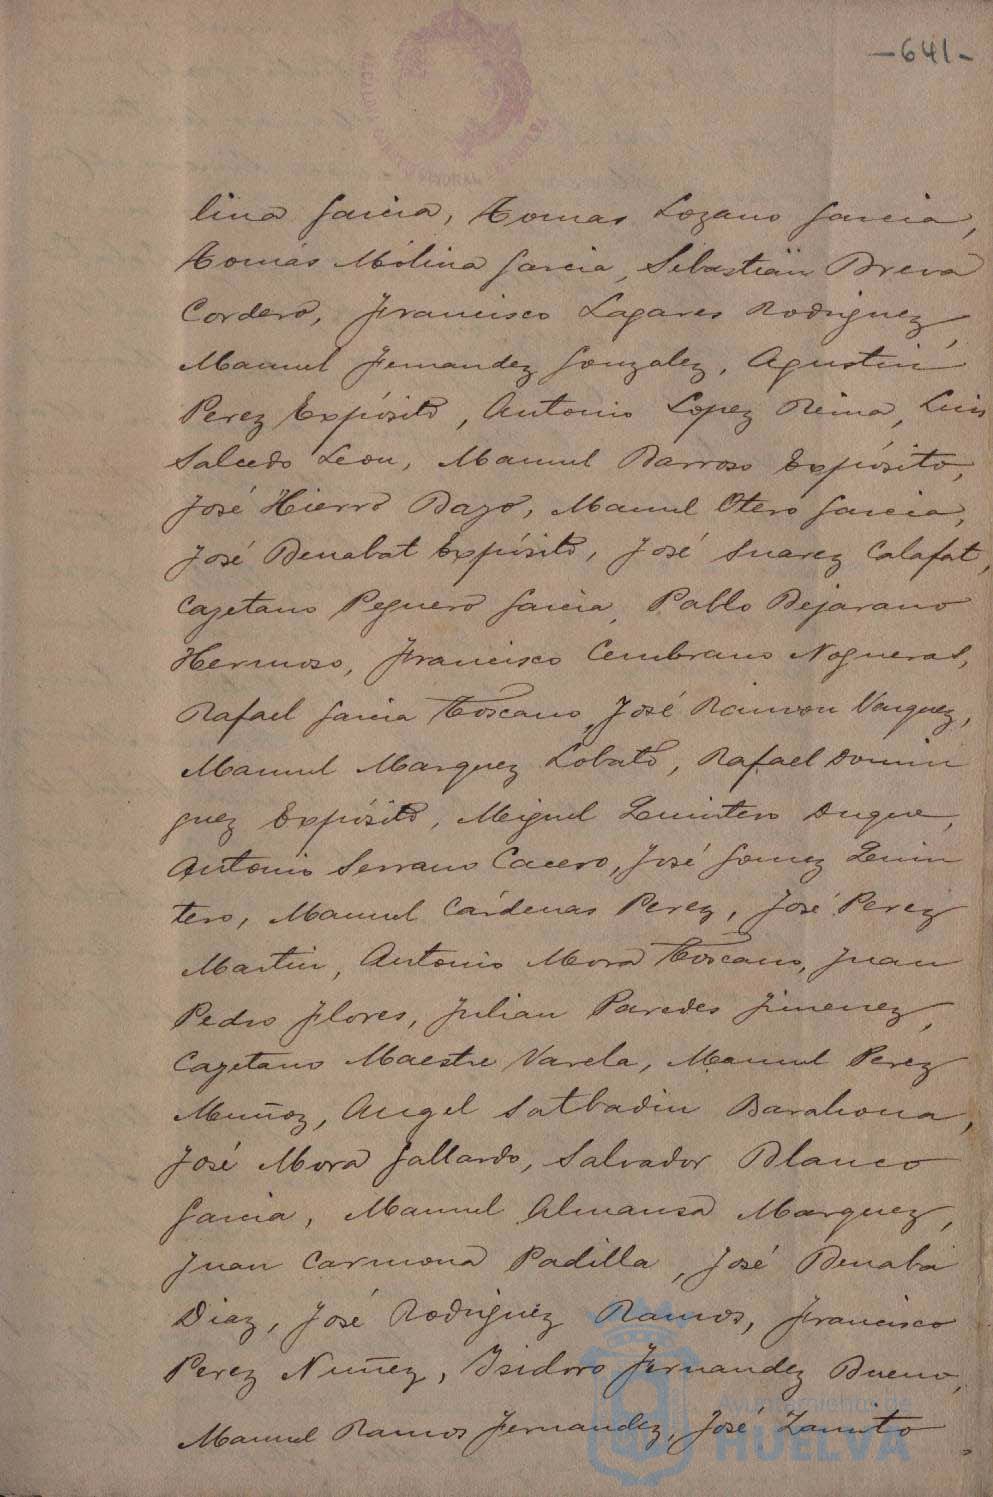 -641-
lina Garcia, Tomas Lozano Garcia,
Tomás Molina Garcia, Sebastian Breva
Cordero, Francisco Lagares Rodriguez,
Manuel Fernandez Gonzalez, Agustin
Perez Expósito, Antonio Lopez Reina, Luis
Salcedo Leon, Manuel Barroso Expósito,
José Hierro Bayo, Manuel Otero Garcia,
José Benabat Expósito, José Suarez Calafat,
Cayetano Peguero Garcia, Pablo Bejarano
Hermoso, Francisco Cembrano Nogueras,
Rafael Garcia Toscano, José Ramon Vazquez,
Manuel Marquez Lobato, Rafael Domin
guez Expósito, Miguel Quintero Duque,
Antonio Serrano Cacero, José Gomez Quin
tero, Manuel Cárdenas Perez, José Perez
Martin, Antonio Mora Toscano, Juan
Pedro Flores, Julian Paredes Jimenez,
Cayetano Maestre Varela, Manuel Perez
Muñoz, Angel Barahona,
José Mora Gallardo, Salvador Blanco
Garcia, Manuel Almansa Marquez,
Juan Carmona Padilla, José Benaba
Diaz, José Rodriguez Ramos, Francisco
Perez Nuñez, Isidoro Fernandez Bueno,
Manuel Ramos Fernandez, José
Ayuntamiento de
HUELVA